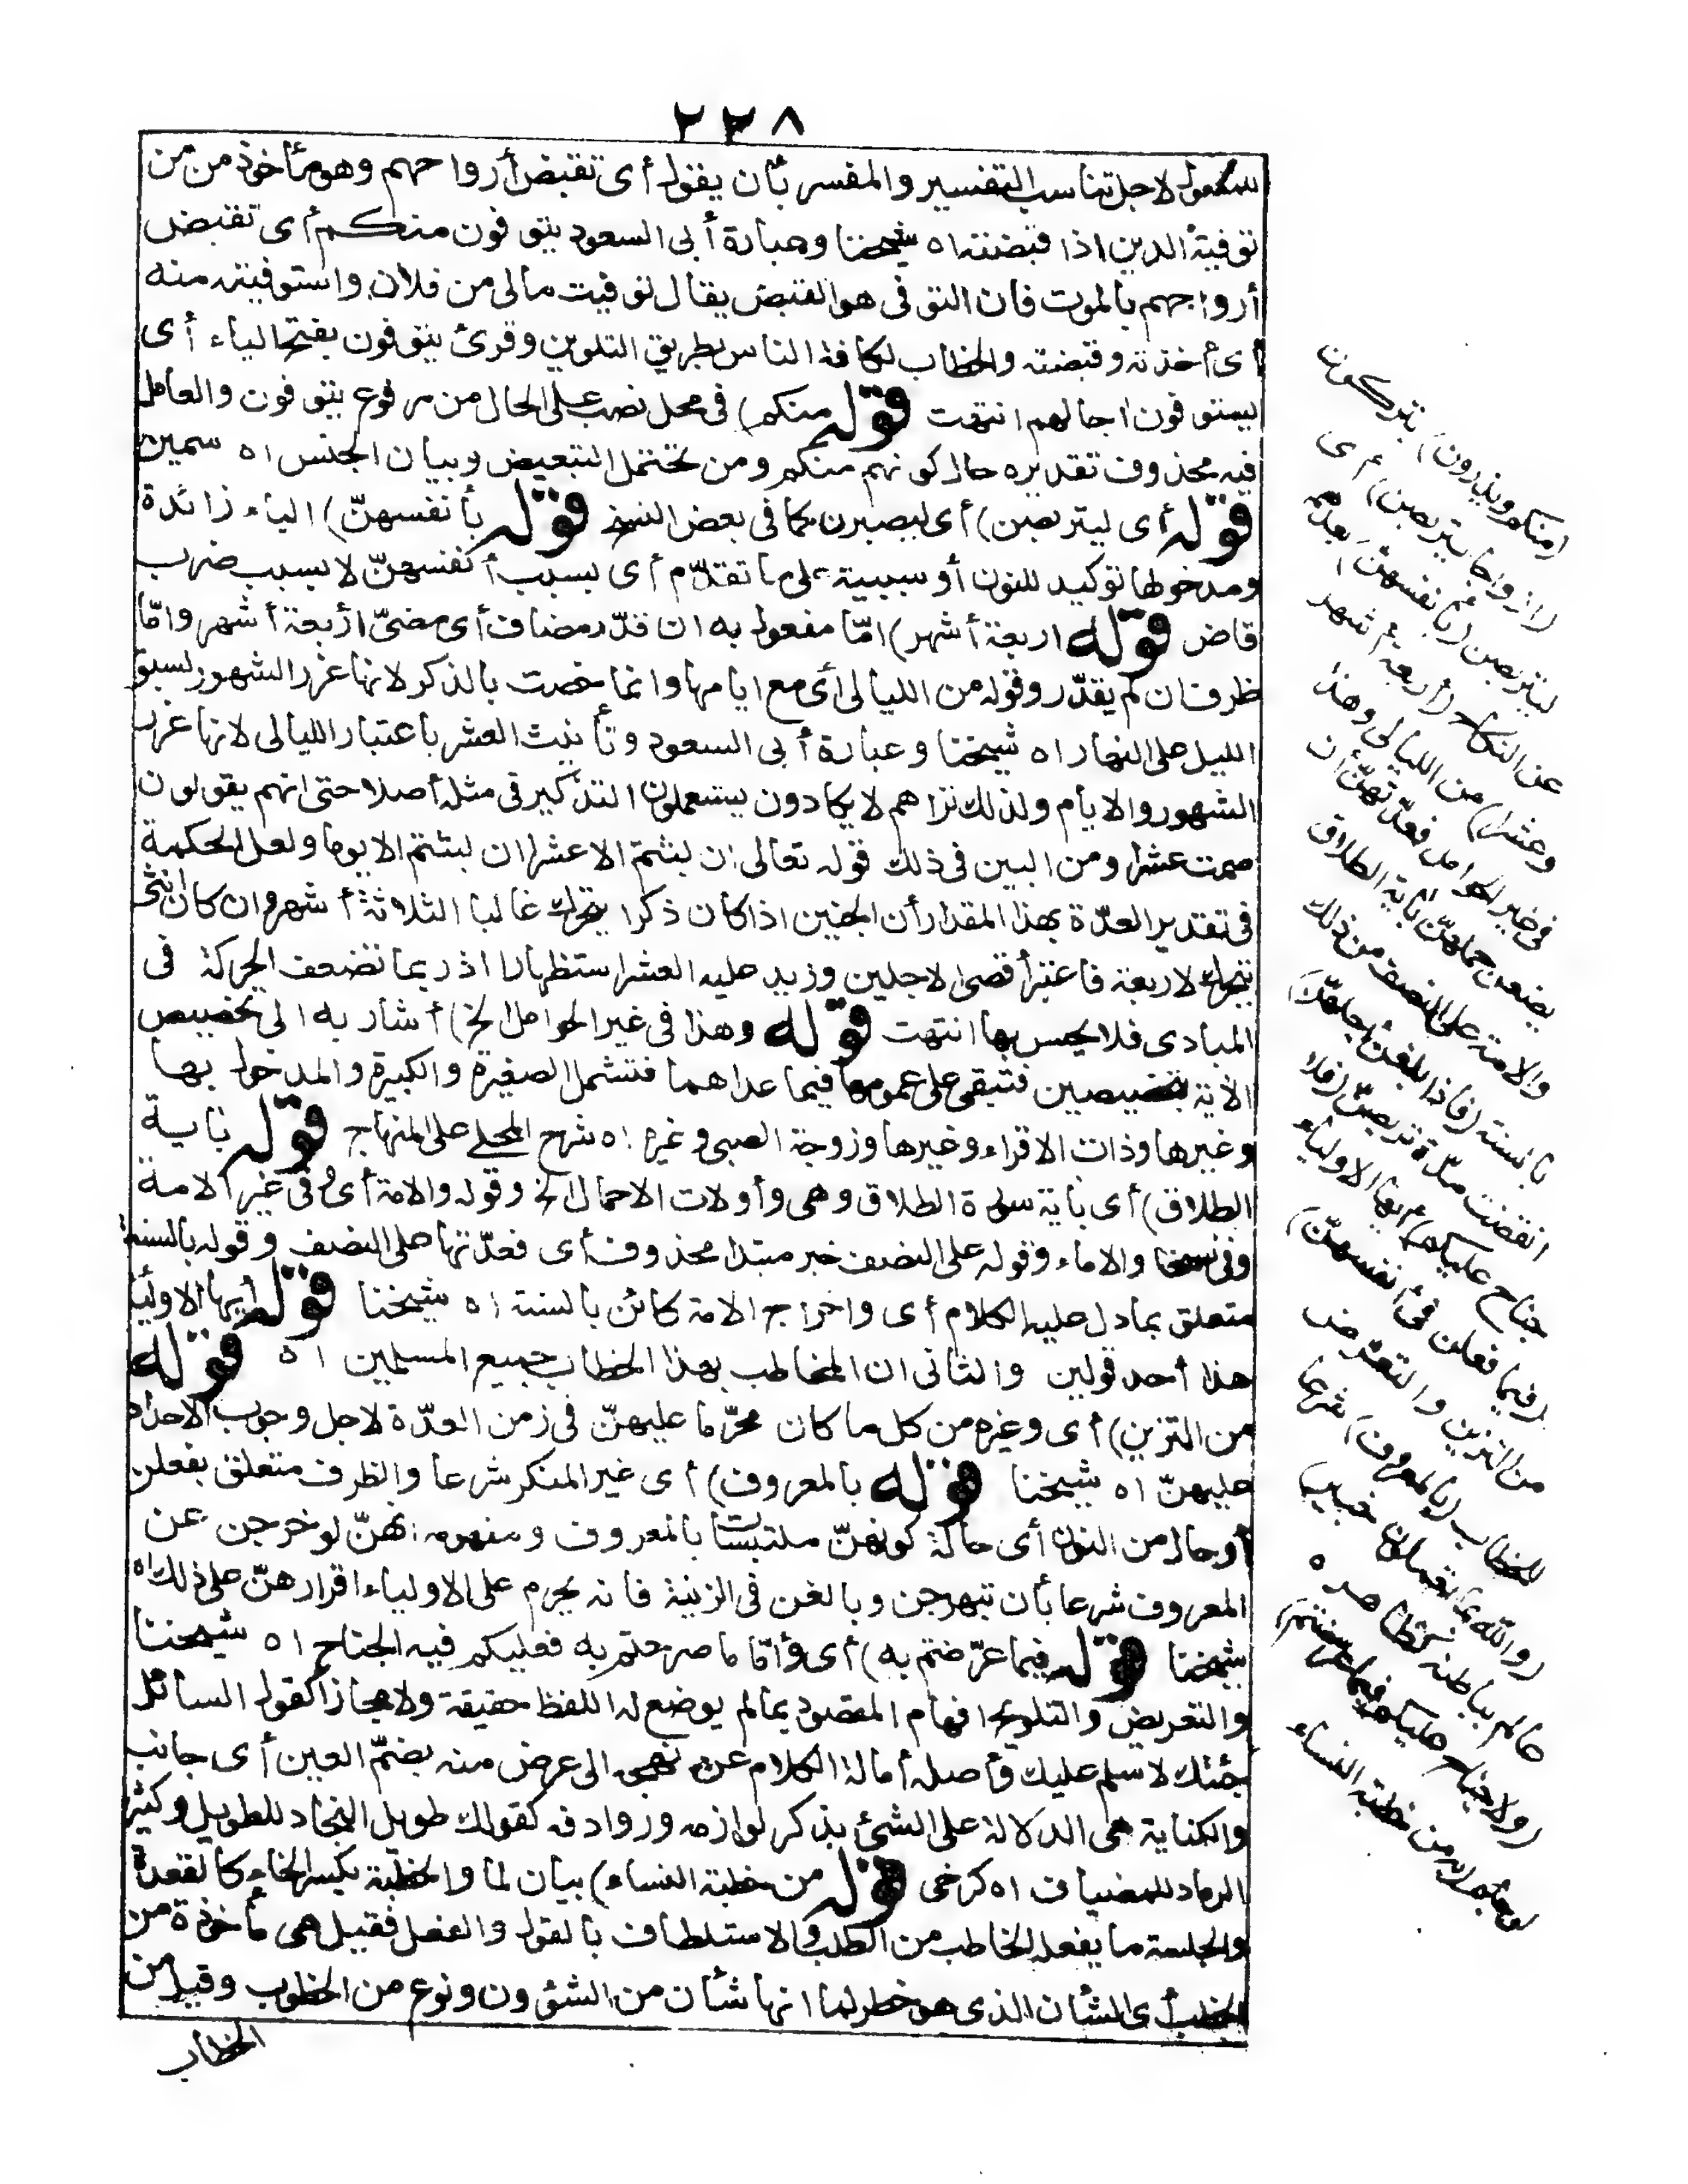 ٢٢٨
للمفعول لاجل تناسب التفسير والمفسر بأن يقول أى تقبض أرواحهم وهو مأخوذ من من
توفية الدين اذا قبضته اه شيخنا وعبارة أبى السعود يتوفون منكم أى تقبض
أرواحهم بالموت فان التوفى هو القبض يقال توفيت مالى من فلان واستوفيته منه
أى أخذته وقبضته والخطاب لكافة الناس بطريق التلوين وقرئ يتوفون بفتح الياء أى
يستوفون اجالهم انتهت قوله منكم) فى محل نصب على الحال من مرفوع يتوفون والعامل
فيه محذوف تقديره حال كونهم منكم ومن تحتمل التبعيض وبيان الجنس اه سمين
قوله أى ليتربصن) أى ليصبرن كما فى بعض النسخ قوله بأنفسهنّ) الباء زائدة
ومدخولها توكيد للنون أو سببية على ما تقدّم أى بسبب أنفسهنّ لا بسبب ضرب
قاض قوله اربعة أشهر) امّا مفعول به ان قدّر مضاف أى مضىّ اربعة أشهر وامّا
ظرف ان لم يقدّر وقوله من الليالى أى مع ايامها وانما خصت بالذكر لانها غرر الشهور لسبق
الليل على النهار اه شيخنا وعبارة أبى السعود وتأنيث العشر باعتبار الليالى لانها غرر
الشهور والايام ولذلك تراهم لا يكادون يستعملون التذكير فى مثله أصلا حتى انهم يقولون
صمت عشرا ومن البين فى ذلك قوله تعالى ان لبثتم الا عشرا ان لبثتم الا يوما ولعل الحكمة
فى تقدير العدّة بهذا المقدار أن الجنين اذا كان ذكرا يتحرك غالبا لثلاثة أشهر وان كان أنثى
يتحرك لاربعة فاعتبر أقصى الاجلين وزيد عليه العشر استظهارا اذ ربما تضعف الحركة فى
المبادى فلا يحس بها انتهت قوله وهذا فى غير الحوامل الخ) أشار به الى تخصيص
الآية بتخصيصين فتبقى على عمومها فيما عداهما فتشمل الصغيرة والكبيرة والمدخول بها
وغيرها وذات الاقراء وغيرها وزوجة الصبى وغيره اه شرح المحلى على المنهاج قوله بآية
الطلاق) أى بآية سورة الطلاق وهى وأولات الاحمال الخ وقوله والامة أى وفى غير الامة
وفى نسخة والاماء وقوله على النصف خبر مبتدا محذوف أى فعدّتها على النصف وقوله بالسنة
متعلق بما دل عليه الكلام أى واخراج الامة كائن بالسنة اه شيخنا قوله أيها الاولياء
هذا أحد قولين والثانى ان المخاطب بهذا الخطاب جميع المسلمين اه قوله
من التزين) أى وغيره من كل ما كان محرّما عليهنّ فى زمن العدّة لاجل وجوب الاحداد
عليهنّ اه شيخنا قوله بالمعروف) أى غير المنكر شرعا والظرف متعلق بفعلن
أو حال من النون أى حالة كونهنّ ملتبسات بالمعروف ومفهومه انهنّ لو خرجن عن
المعروف شرعا بأن تبهرجن وبالغن فى الزينة فانه يحرم على الاولياء اقرارهنّ على ذلك اه
شيخنا قوله فيما عرّضتم به) أى وأمّا ما صرحتم به فعليكم فيه الجناح اه شيخنا
والتعريض والتلويح افهام المقصود بما لم يوضع له اللفظ حقيقة ولا مجازا كقول السائل
جئتك لاسلم عليك وأصله أمالة الكلام عن نهجه الى عرض منه بضمّ العين أى جانب
والكناية هى الدلالة على الشئ بذكر لوازمه وروادفه كقولك طويل النجاد للطويل وكثير
الرماد للمضياف اه كرخى قوله من خطبة النساء) بيان لما والخطبة بكسر الخاء كالقعدة
والجلسة ما يفعله الخاطب من الطلب والاستلطاف بالقول والفعل فقيل هى مأخوذة من
الخطب أى الشأن الذى هو خطر لما انها شأن من الشؤون ونوع من الخطوب وقيل من
الخطاب
(منكم ويذرون) يتركون
(ازواجا يتربصن) أى
ليتربصن (بأنفسهنّ) بعدهم
عن النكاح (أربعة أشهر
وعشرا) من الليالى وهذا
فى غير الحوامل فعدّتهنّ أن
يضعن حملهنّ بآية الطلاق
والامة على النصف من ذلك
بالسنة (فاذا بلغن أجلهنّ)
انقضت مدّة تربصهنّ (فلا
جناح عليكم) أيها الاولياء
(فيما فعلن فى أنفسهنّ)
من التزين والتعرّض
للخطاب (بالمعروف) شرعا
(والله بما تعملون خبير)
عالم بباطنه كظاهره
(ولا جناح عليكم فيما عرضتم)
لوحتم (به من خطبة النساء